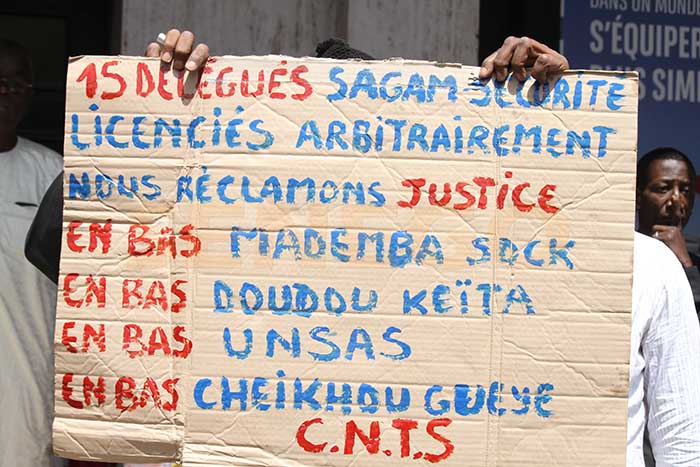 DANS UN MONDE
S'ÉQUIPER
PLUS SIM
15 DÉLEGUÉS SAGAM SÉCURITÉ
LICENCIÉS ARBITRAIREMENT
NOUS RÉCLAMONS JUSTICE
EN BAS MADEMBA SOCK
EN BAS DOUDOU KEÏTA
EN BAS UNSAS
EN BAS CHEIKHOU GUEYE
C.N.T.S